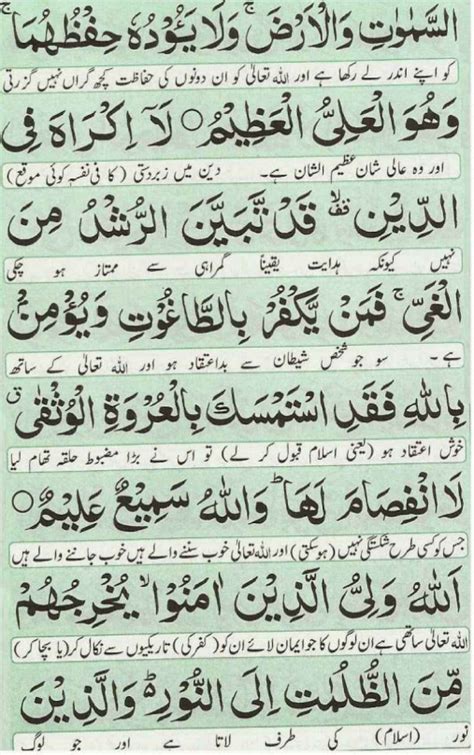 السَّمٰوٰتِ وَالْاَرْضَ ۚ وَلَا يَـُٔوْدُهٗ حِفْظُهُمَا ۚ
کو اپنے اندر لے رکھا ہے اور اللہ تعالیٰ کو ان دونوں کی حفاظت کچھ گراں نہیں گزرتی
وَهُوَ الْعَلِيُّ الْعَظِيْمُ ○ لَآ اِكْرَاهَ فِي
اور وہ عالی شان عظیم الشان ہے۔ دین میں زبردستی (کا فی نفسہٖ کوئی موقع)
الدِّيْنِ ۙ قَدْ تَّبَيَّنَ الرُّشْدُ مِنَ
نہیں کیونکہ ہدایت یقیناً گمراہی سے ممتاز ہو چکی
الْغَيِّ ۚ فَمَنْ يَّكْفُرْ بِالطَّاغُوْتِ وَيُؤْمِنْۢ
ہے۔ سو جو شخص شیطان سے بداعتقاد ہو اور اللہ تعالیٰ کے ساتھ
بِاللّٰهِ فَقَدِ اسْتَمْسَكَ بِالْعُرْوَةِ الْوُثْقٰى ۤ
خوش اعتقاد ہو (یعنی اسلام قبول کر لے) تو اس نے بڑا مضبوط حلقہ تھام لیا
لَا انْفِصَامَ لَهَا ؕ وَاللّٰهُ سَمِيْعٌ عَلِيْمٌ ○
جس کو کسی طرح شکستگی نہیں (ہو سکتی) اور اللہ تعالیٰ خوب سننے والے ہیں خوب جاننے والے ہیں
اَللّٰهُ وَلِيُّ الَّذِيْنَ اٰمَنُوْا ۙ يُخْرِجُهُمْ
اللہ تعالیٰ ساتھی ہے ان لوگوں کا جو ایمان لائے ان کو (کفر کی) تاریکیوں سے نکال کر (یا بچا کر)
مِّنَ الظُّلُمٰتِ اِلَى النُّوْرِ ؕ وَالَّذِيْنَ
نور (اسلام) کی طرف لاتا ہے اور جو لوگ